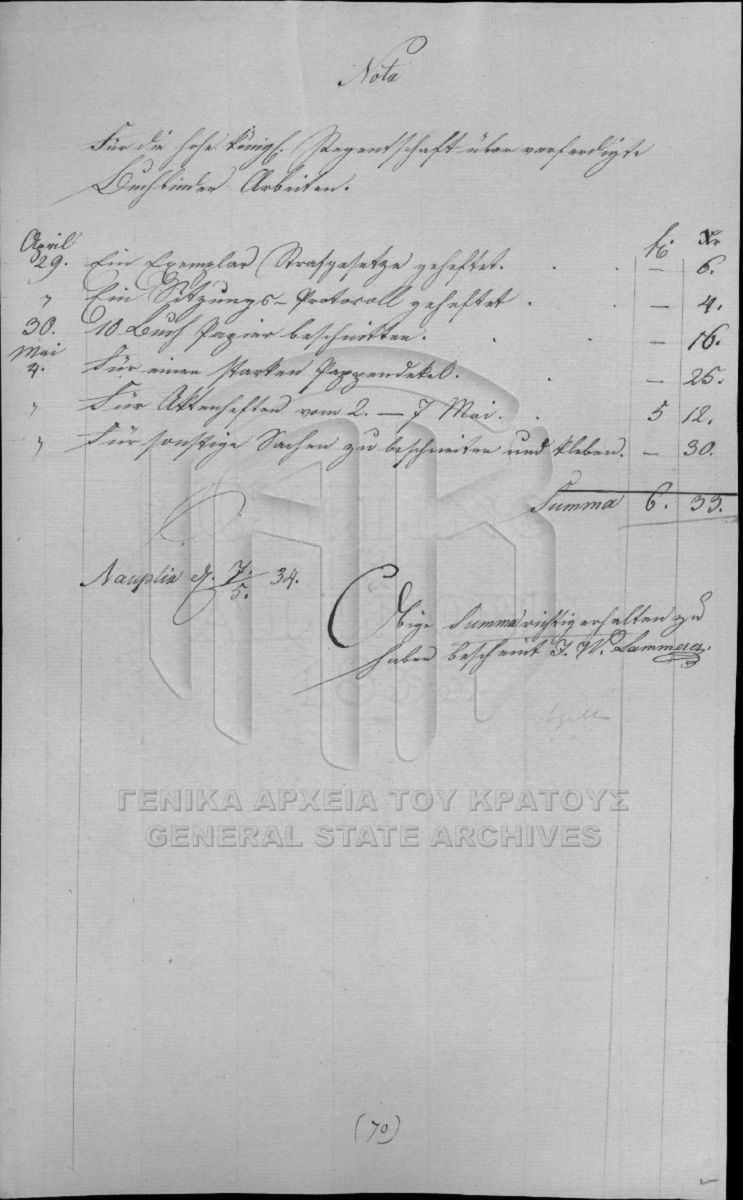 Nota
Für die hohe königl. Regentschaft über verferdigte
Buchbinder Arbeiten.
fl. Xr.
April
29. Ein Exemplar Strafgesetze geheftet. . . . — 6.
" Ein Sitzungs-Protocoll geheftet . . — 4.
30. 10 Buch Papier beschnitten. . . — 16.
Mai
4. Für einen starken Pappendekel. . — 25.
" Für Aktenheften vom 2. — 7 Mai. . 5 12.
" Für sonstige Sachen zu beschneiten und kleben. — 30.
Summa 6. 33.
Nauplia d. 7./5. 34.
Obige Summa richtig erhalten zu
haben bescheint J. W. Lammerer.
(70)
ΓΕΝΙΚΑ ΑΡΧΕΙΑ ΤΟΥ ΚΡΑΤΟΥΣ
GENERAL STATE ARCHIVES